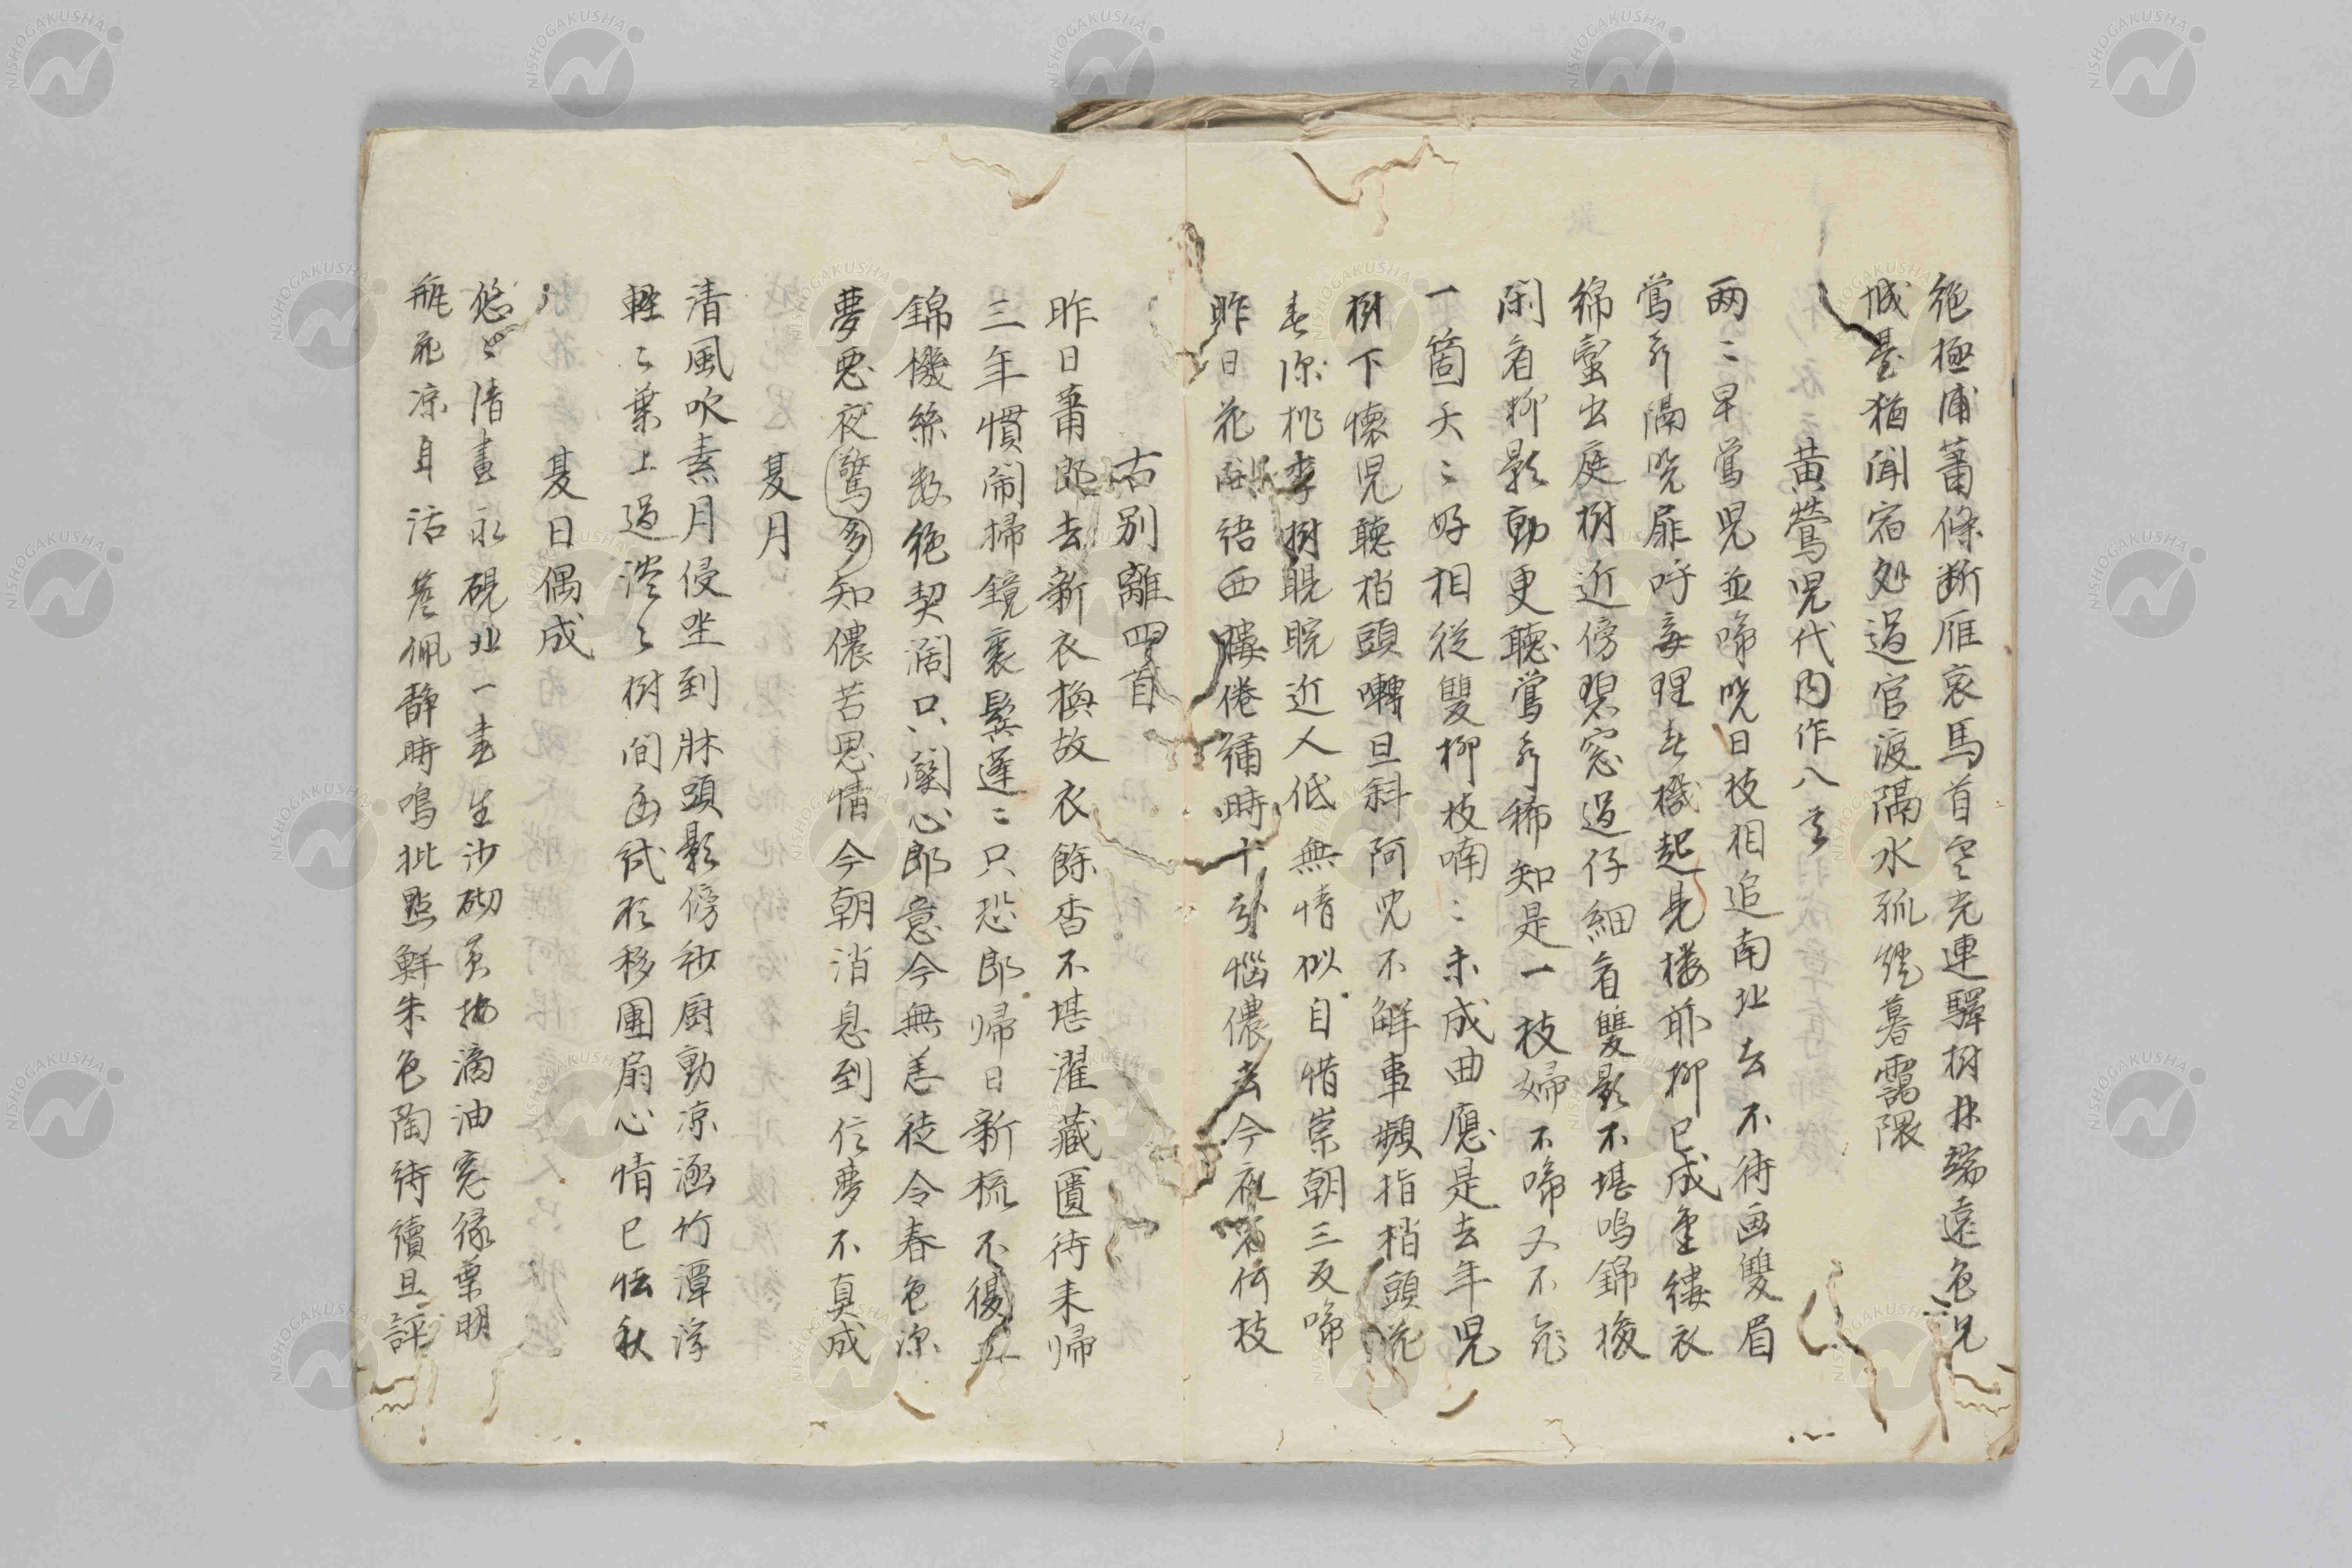 絶極浦蕭條断雁哀馬首寒光連驛樹林端遠色
城臺猶聞宿処過官渡隔水孤 暮靄隈
黄鶯児代内作八首
两〻早鶯児並啼晩日枝相追南北去不待画雙眉
鶯声隔晩扉呼妾理春機起見楼前柳已成金縷衣
綿蛮出庭樹近傍碧窓過仔細看雙影不堪鳴錦梭
閑看柳影動更聴鶯声稀知是一枝婦不啼又不飛
一箇夭〻好相従雙柳枝喃〻未成曲應是去年児
樹下懐児聴梢頭囀旦斜阿児不解事頻指梢頭花
春深桃李樹睍睆近人低無情似自惜崇朝三反啼
昨日花 結西 倦繍時十引悩儂去今 宿何枝
古別離四首
昨日蕭郎去新衣換故衣餘香不堪濯藏匱待来帰
三年慣閙掃鏡裏鬟蓬〻只恐郎帰日新梳不復工
錦機絲数絶契濶只関心郎意今無恙徒令春色深
夢悪夜驚多知儂苦思情今朝消息到信夢不真成
夏月
清風吹素月侵坐到牀頭影傍紗厨動凉涵竹潭浮
軽〻葉上過澹〻樹間幽試欲移團扇心情已怯秋
夏日偶成
悠〻清晝永硯北一 生沙砌 梅滴油窓緑葉明
瓶花凉自活簷佩静時鳴批點鮮朱色陶詩續且評